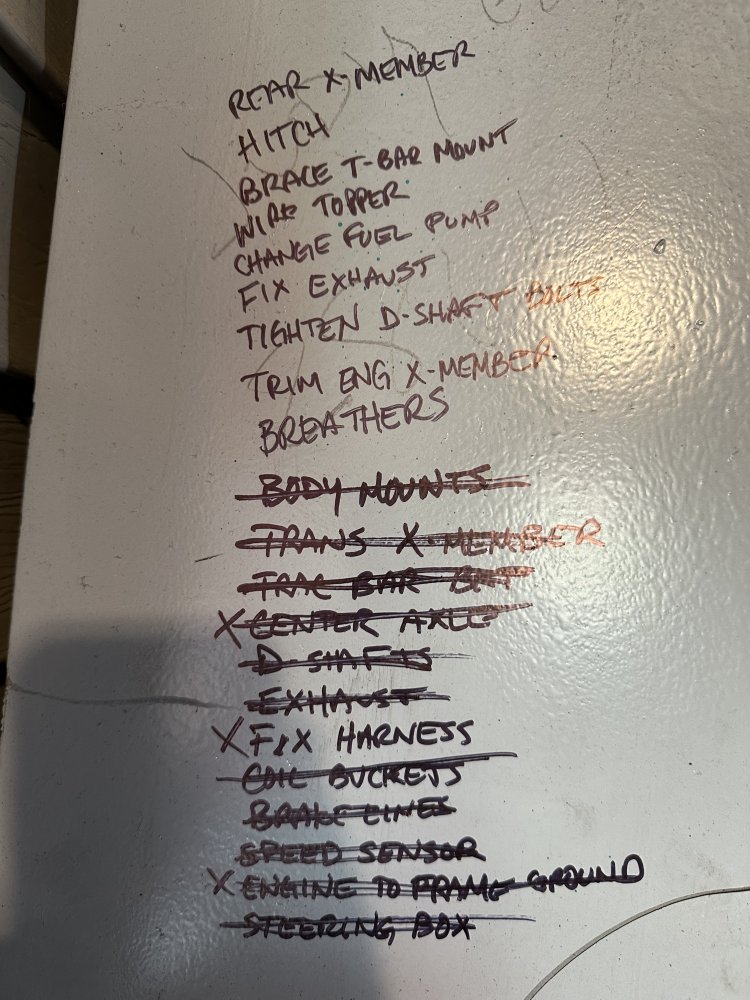 REAR X-MEMBER
HITCH
BRACE T-BAR MOUNT
WIRE TOPPER
CHANGE FUEL PUMP
FIX EXHAUST
TIGHTEN D-SHAFT BOLTS
TRIM ENG X-MEMBER
BREATHERS
BODY MOUNTS
TRANS X-MEMBER
TRAC BAR
X CENTER AXLE
D-SHAFTS
EXHAUST
X FIX HARNESS
COIL BUCKETS
BRAKE LINES
SPEED SENSOR
X ENGINE TO FRAME GROUND
STEERING BOX